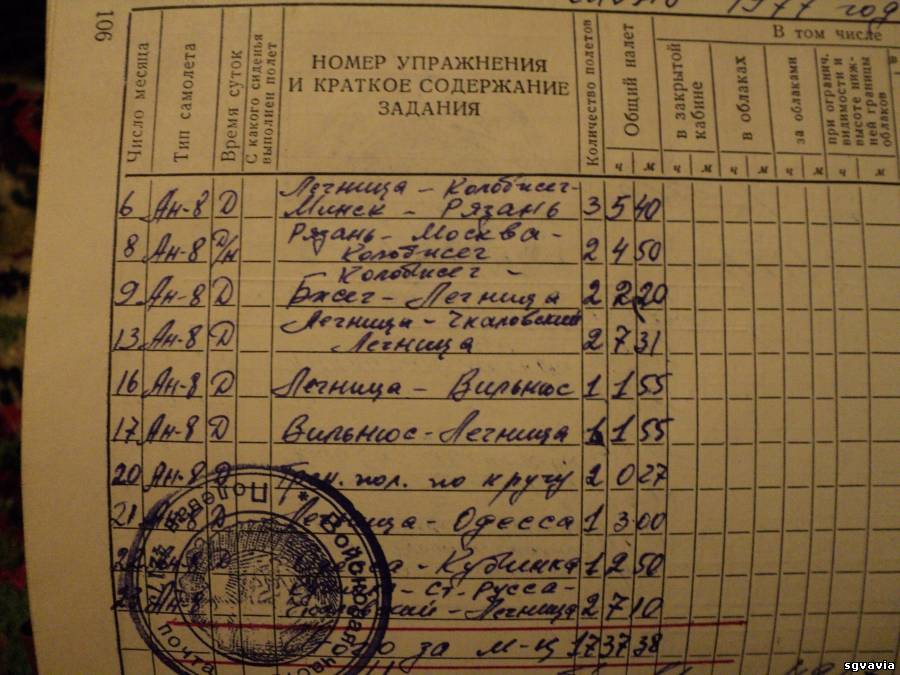 1977 год
106
Число месяца
Тип самолета
Время суток
С какого сиденья
выполнен полет
НОМЕР УПРАЖНЕНИЯ
И КРАТКОЕ СОДЕРЖАНИЕ
ЗАДАНИЯ
Количество полетов
Общий налет
В том числе
в закрытой
кабине
в облаках
за облаками
при огранич.
видимости и
высоте ниж-
ней границы
облаков
ч м ч м ч м ч м ч м
Легница - Колобжег-
6 Ан-8 Д Минск - Рязань 3 5 40
Рязань - Москва -
8 Ан-8 Д/н Колобжег 2 4 50
Колобжег -
9 Ан-8 Д Бжег - Легница 2 2 20
Легница - Чкаловский
13 Ан-8 Д Легница 2 7 31
16 Ан-8 Д Легница - Вильнюс 1 1 55
17 Ан-8 Д Вильнюс - Легница 1 1 55
20 Ан-8 Д Трен. пол. по кругу 2 0 27
21 Ан-8 Д Легница - Одесса 1 3 00
22 Ан-8 Д Одесса - Кубинка 1 2 50
- Ст. Русса -
Ан-8 - Легница 2 7 10
Итого за м-ц 17 37 38
* Войсковая часть
Полевая почта
sgvavia